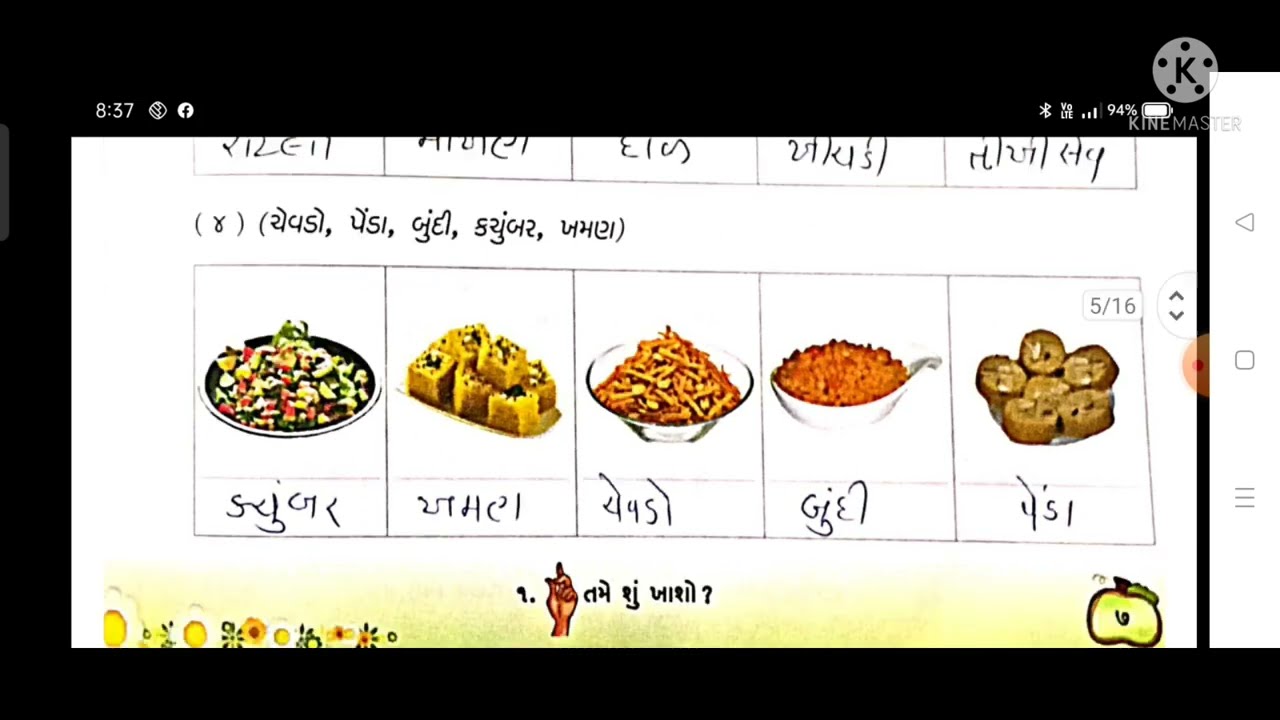 8:37 94%
KINEMASTER
રોટલી માખણ દાળ ખીચડી તીખી સેવ
(૪) (ચેવડો, પેંડા, બુંદી, કચુંબર, ખમણ)
5/16
કચુંબર ખમણ ચેવડો બુંદી પેંડા
૧. તમે શું ખાશો?
૭